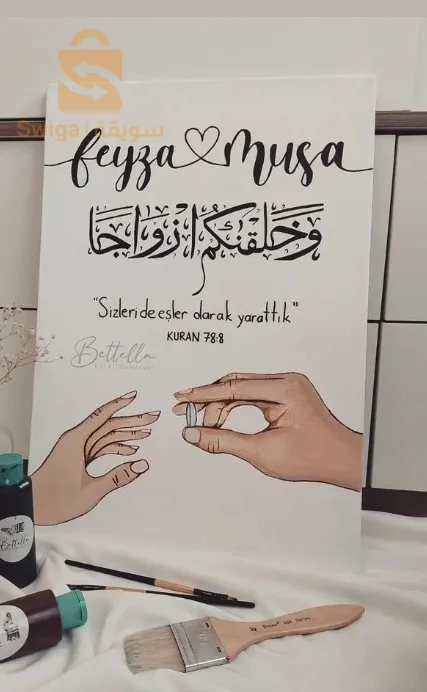 Swiga | سويقة
feyza ♡ Musa
وَخَلَقْنَكُمْ اَزْوَاجًا
"Sizleri de eşler olarak yarattık"
KURAN 78:8
Bettella
Bettella